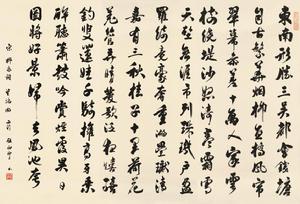 東南形勝三吳都會錢塘
自古繁華煙柳畫橋風帘
翠幕參差十萬人家雲
樹繞堤沙怒濤卷霜雪
天塹無涯市列珠璣戶盈
羅綺競豪奢重湖疊巘清
嘉有三秋桂子十里荷花
羌管弄晴菱歌泛夜嬉嬉
釣叟蓮娃千騎擁高牙乘
醉聽簫鼓吟賞煙霞異日
圖將好景歸去鳳池夸
宋柳永詞望海潮